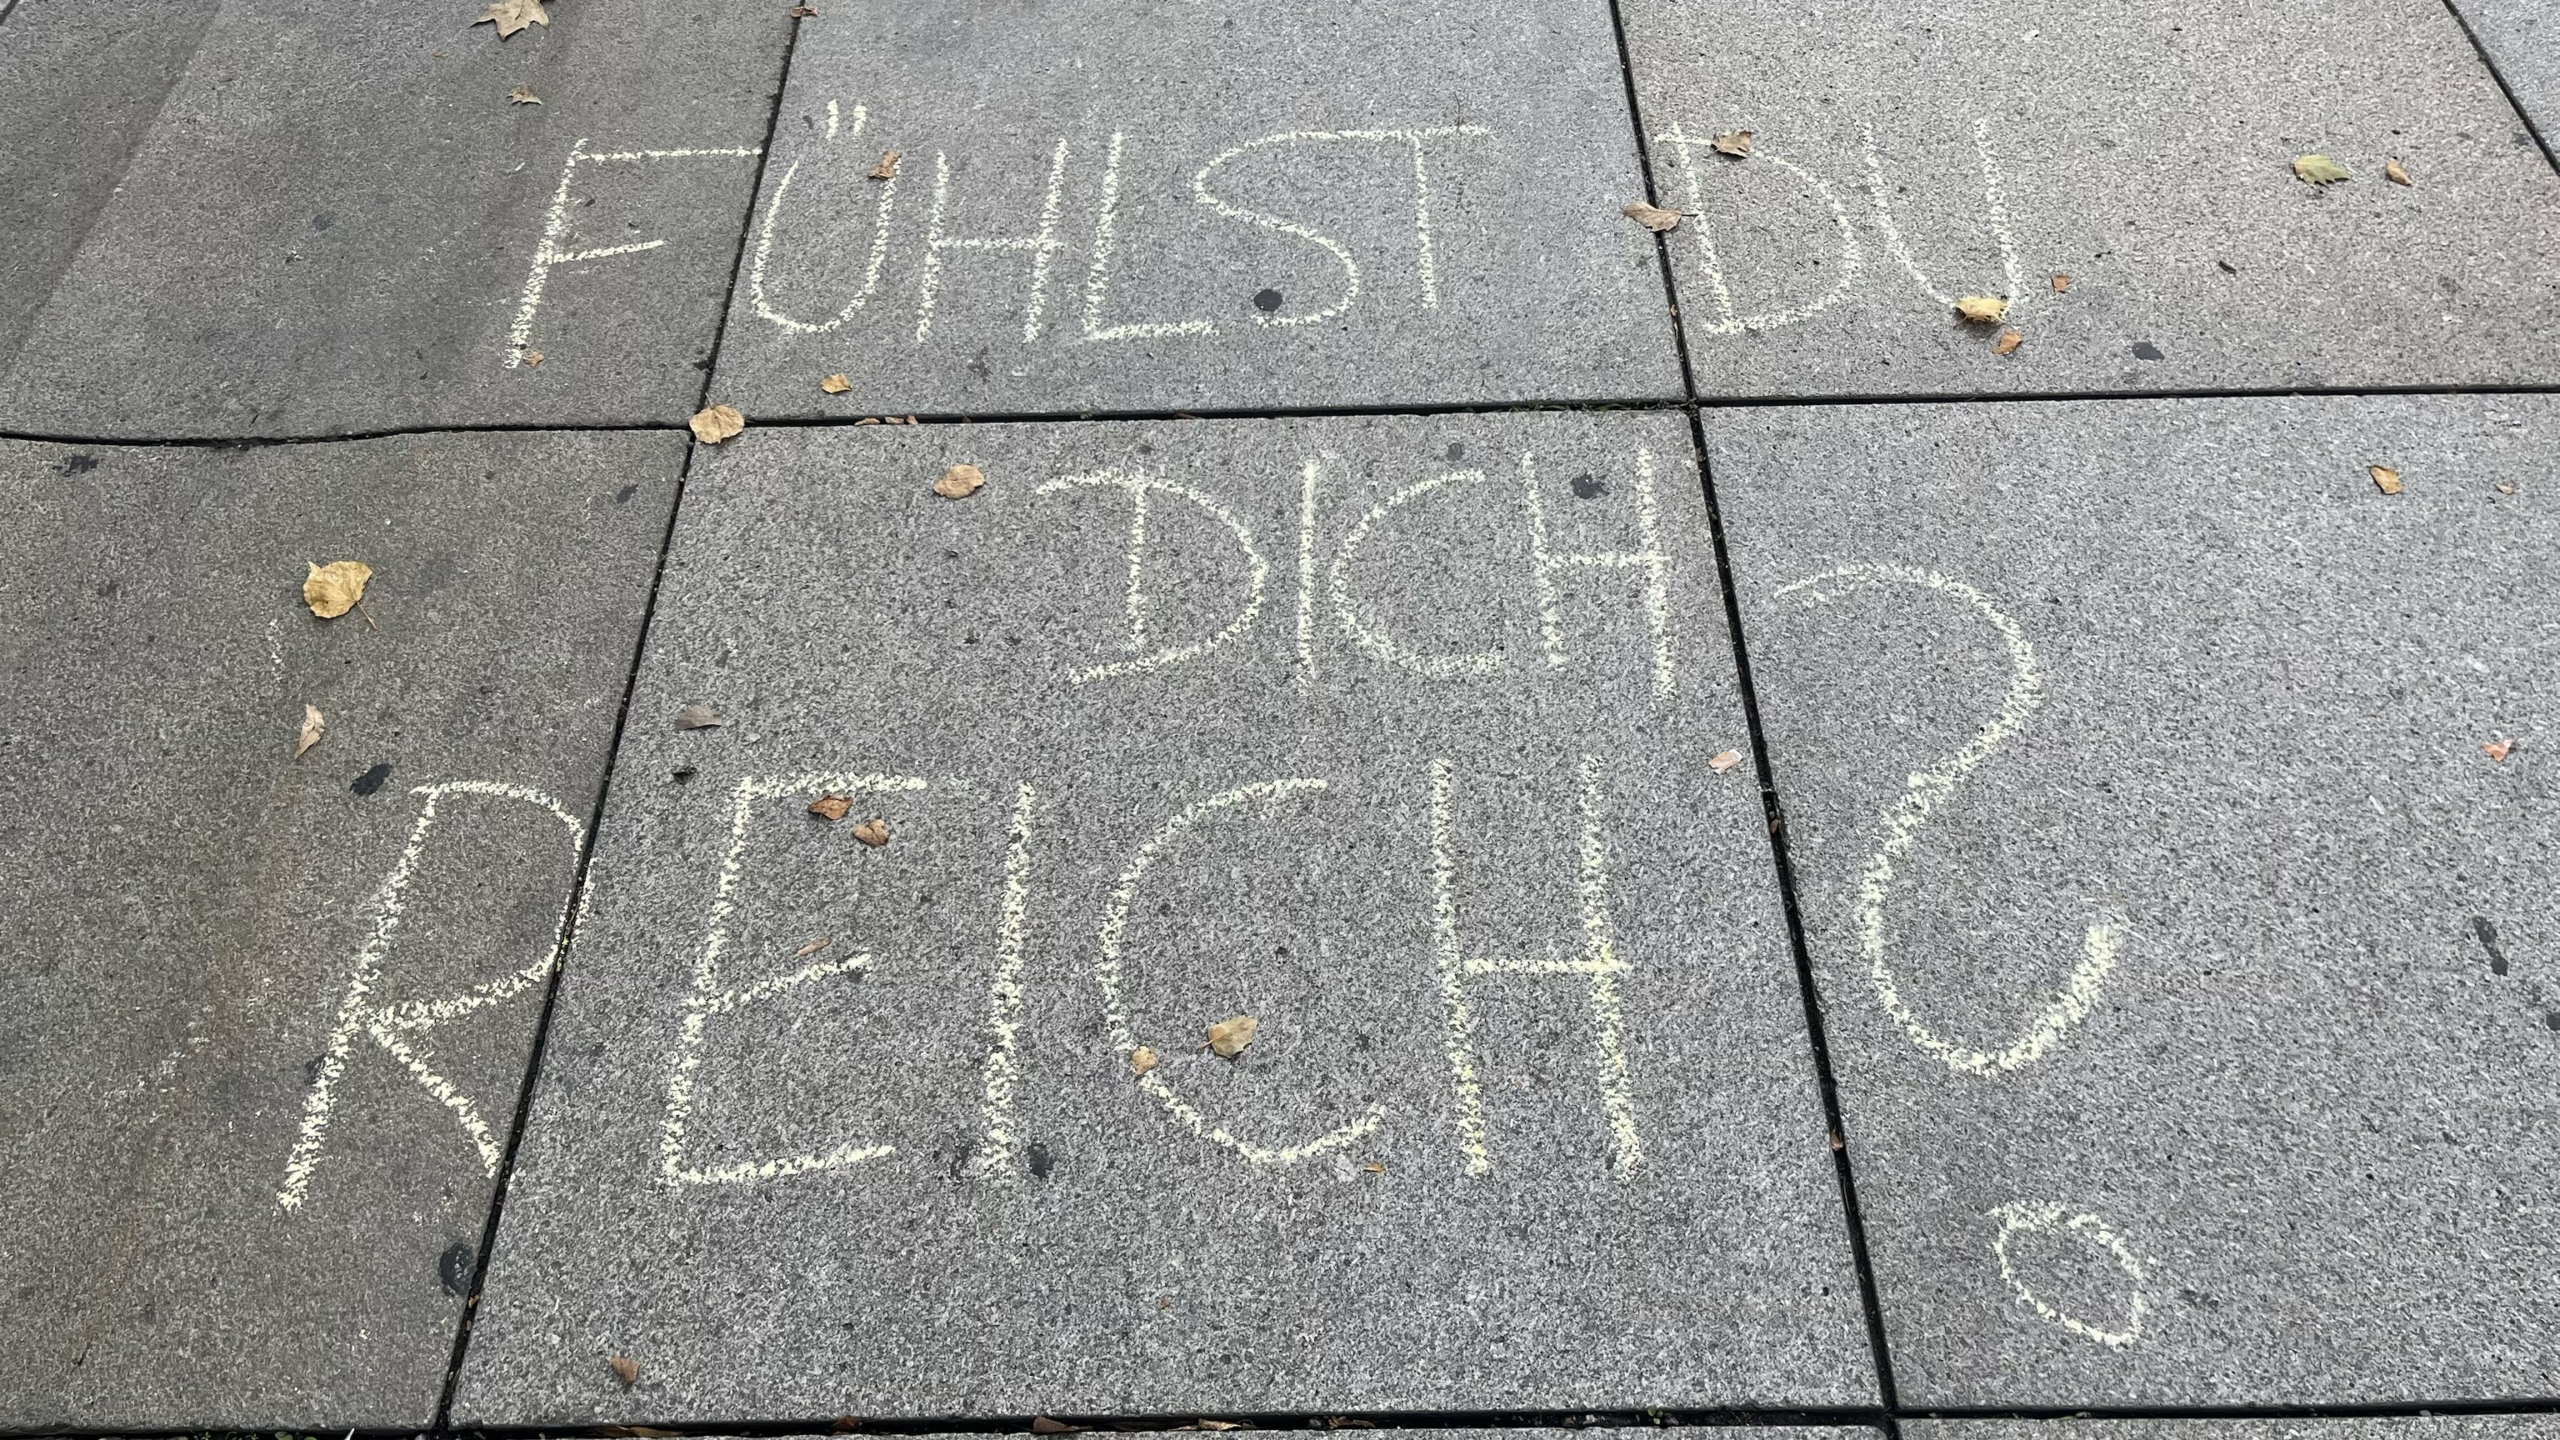 FÜHLST DU
DICH
REICH?